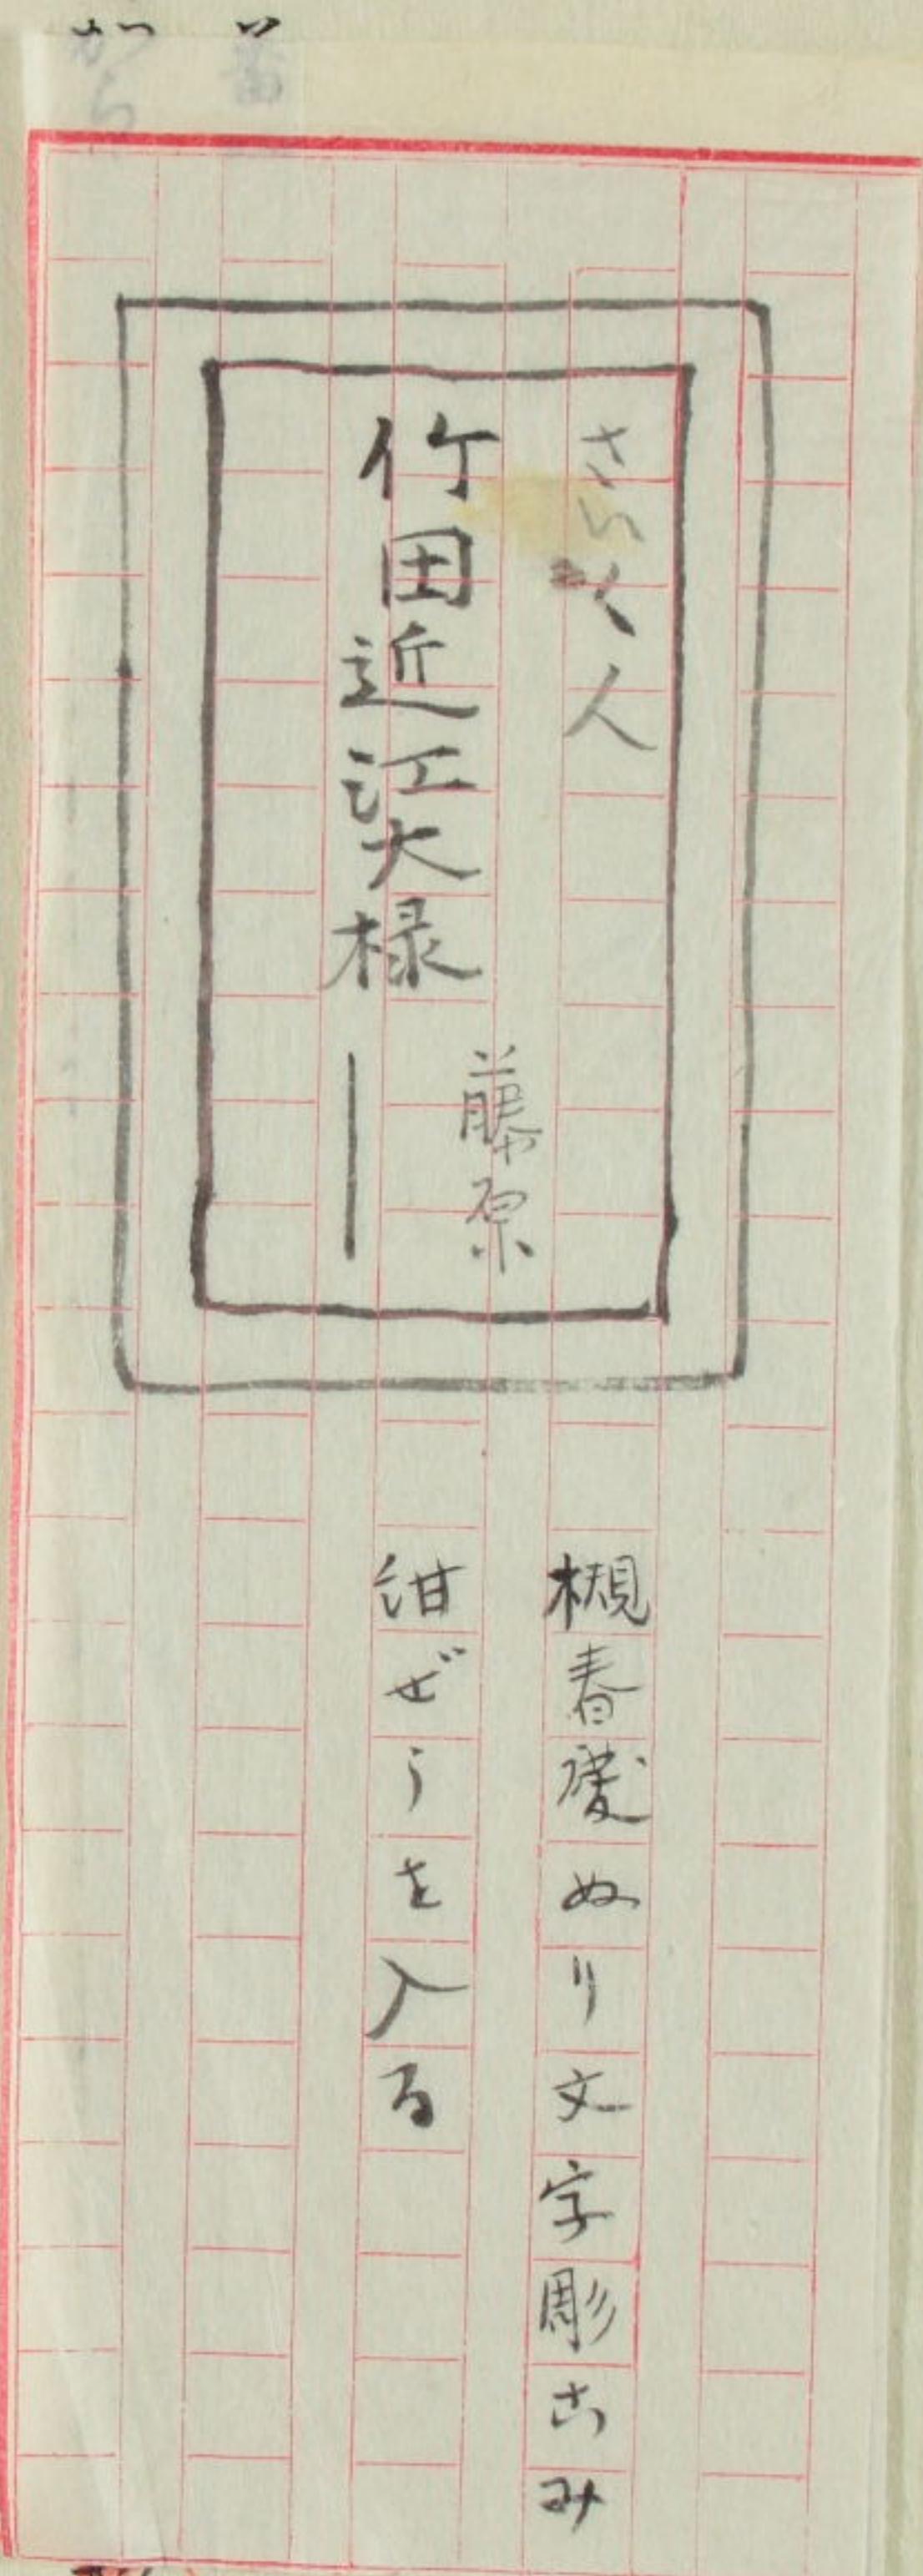 さいく人
竹田近江大椽
藤原
槻春慶ぬり文字彫こみ
紺ぜうを入る